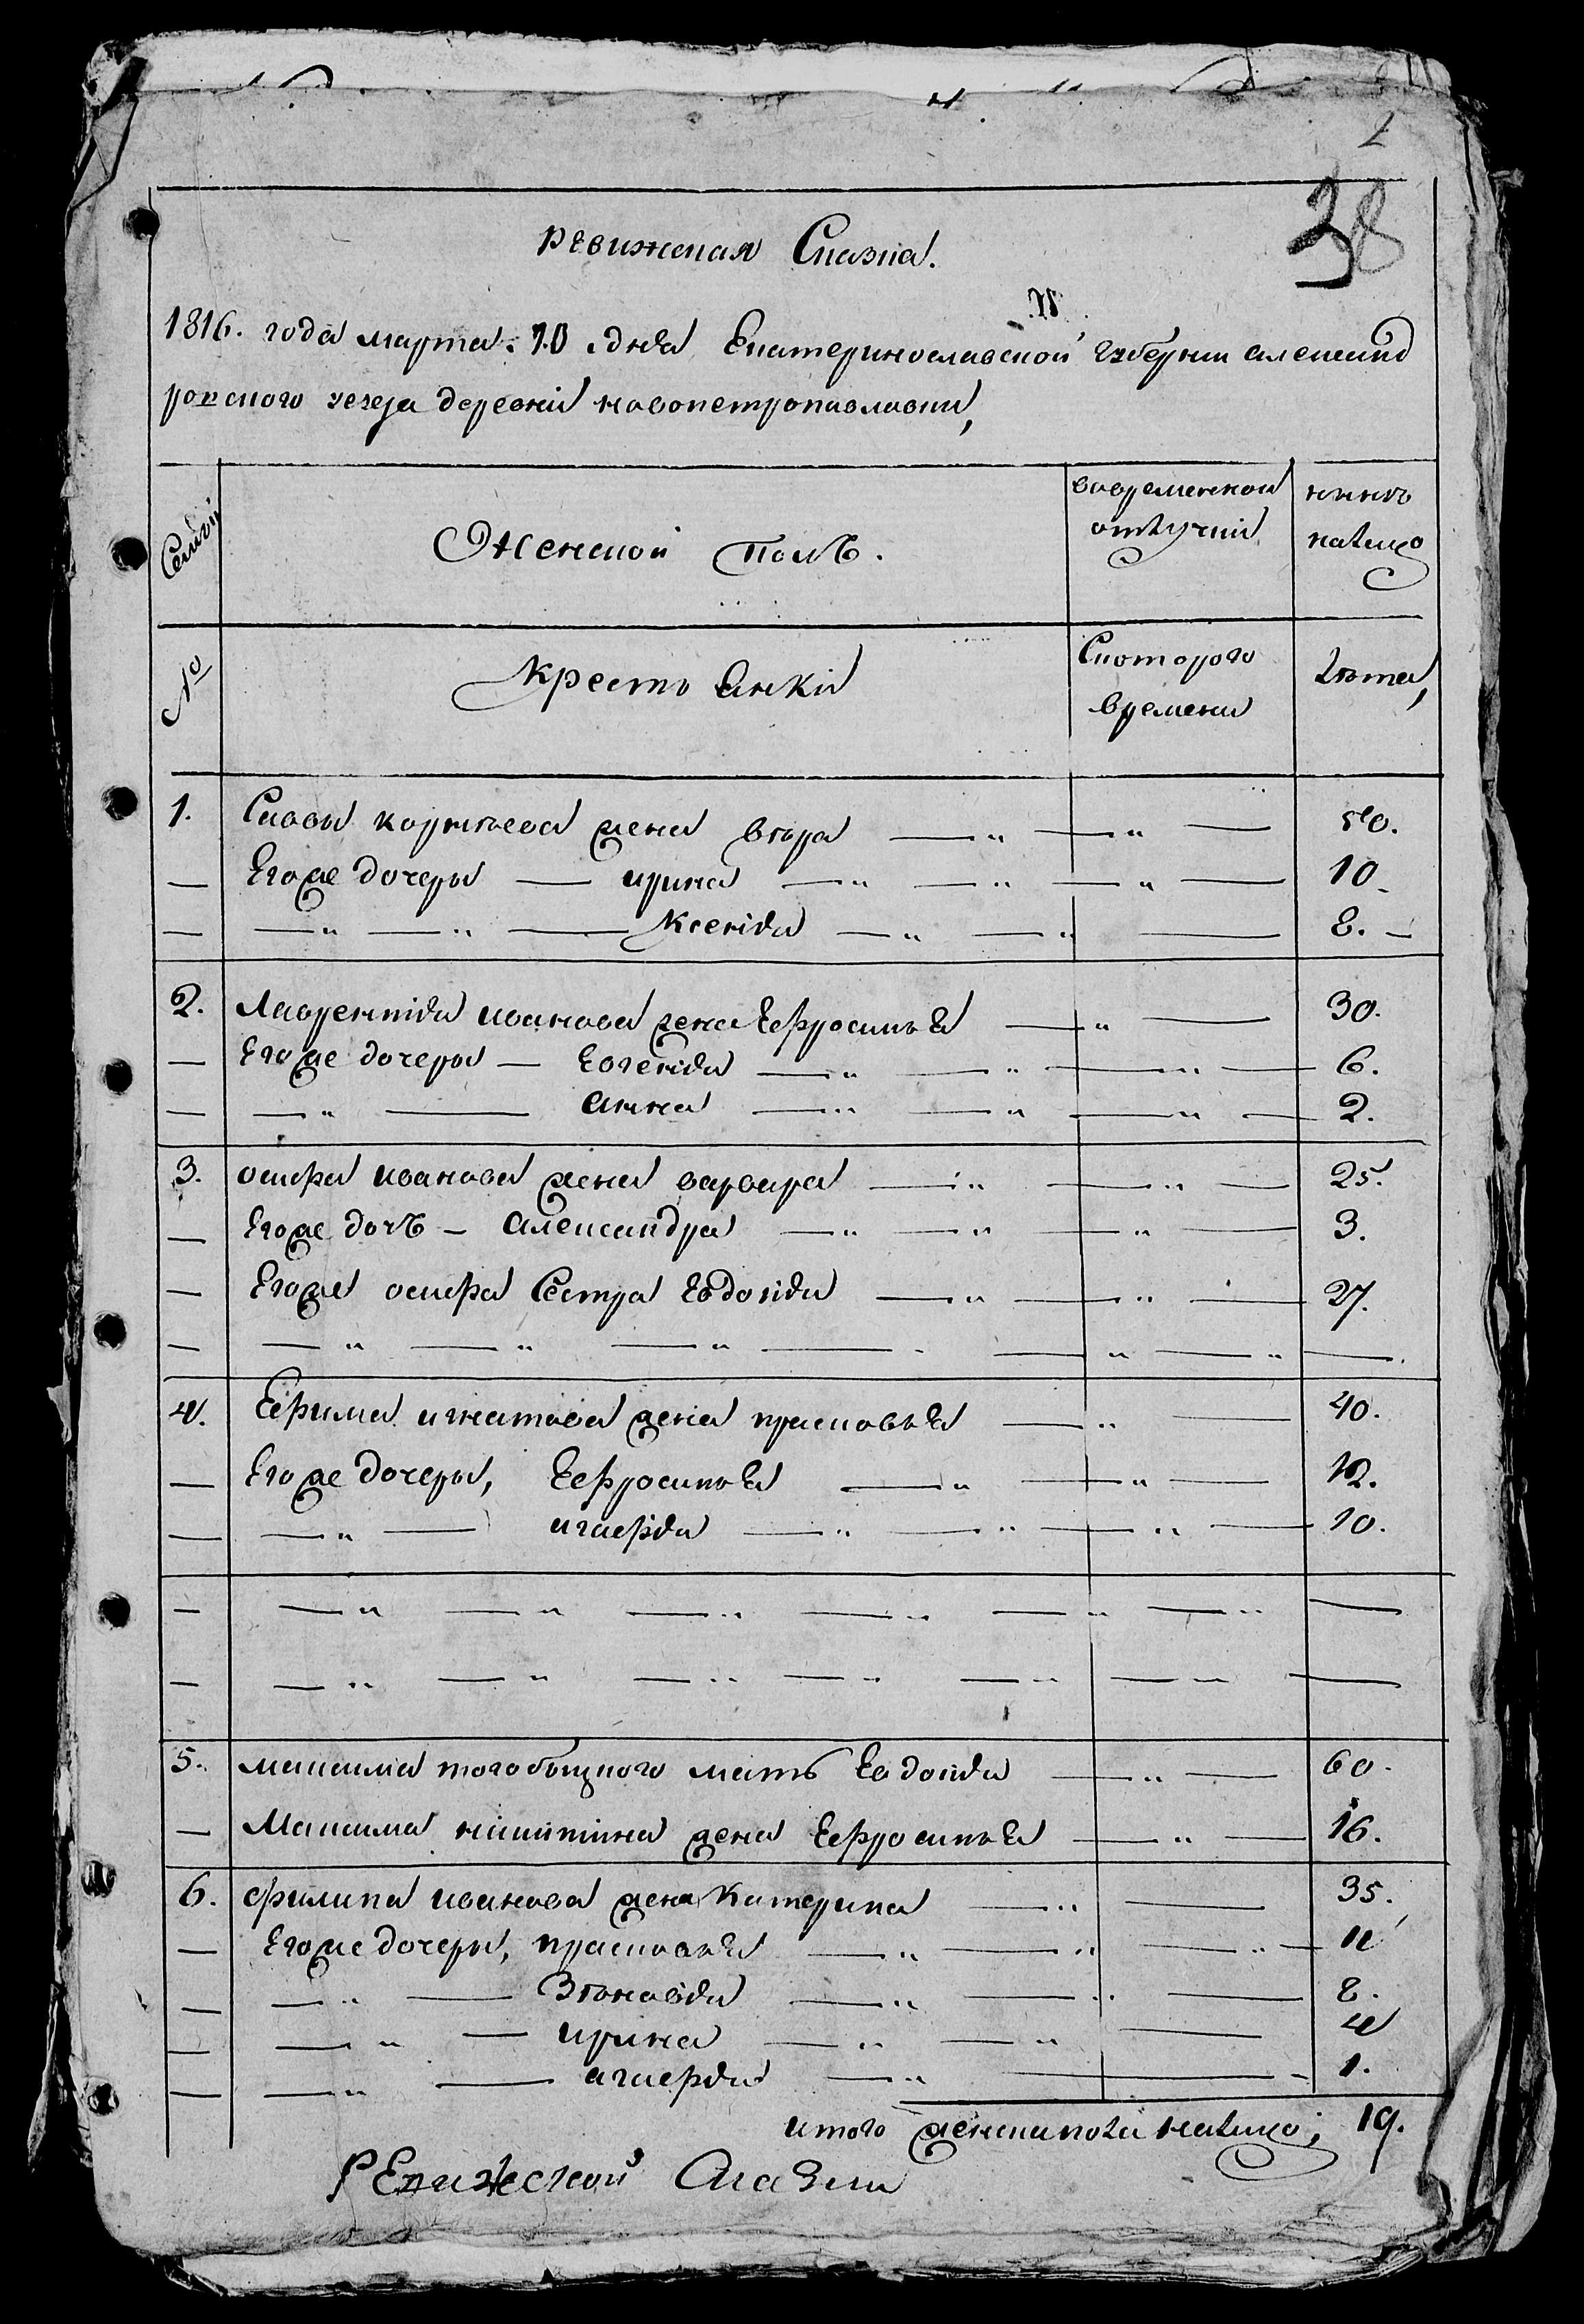 38
ревижская Сказка.
1816. года марта. 10 дня Екатеринославской губерни александ
ровского уезда деревни новопетропавловки,
Семьи
Женской полъ.
вовременной отлучки
нынѣ налицо
№
Крестьянки
Скоторого времени
Лѣта,
1. Савы корнѣева жена вѣра — „ — „ — 50.
— Егоже дочеры — ирина — „ — „ — „ — 10
— — „ — „ — Ксенія — „ — „ — 8. —
2. Лаврентія иванова жена Ефросинья — „ — 30.
— Егоже дочеры — Евгенія — „ — „ — „ — 6.
— — „ — анна — „ — „ — „ — 2.
3. осифа иванова жена варвара — „ — „ — 25.
— Егоже дочъ — александра — „ — „ — „ — 3.
— Егоже осифа Сестра Евдокія — „ — „ — 27.
— — „ — „ — „ — — „ — „ —
4. Ефима игнатова жена прасковья — „ — 40.
— Егоже дочеры, Ефросинья — „ — „ — 12.
— — „ — агафія — „ — „ — „ — 10.
— — „ — „ — „ — „ — „ — „ —
— — „ — „ — „ — „ — „ — „ —
5. максима тогобыцкого мать Евдокія — „ — 60.
— Максима никитина жена Ефросинья — „ — 16.
6. филипа иванова жена Катерина — „ — 35.
— Егоже дочеры, прасковья — „ — „ — „ — 11
— — „ — Зѣновія — „ — „ — 8.
— — „ — ирина — „ — „ — 4
— — „ — агафія — „ — — 1.
итого женска пола налицо; 19.
РЕвижской Сказки